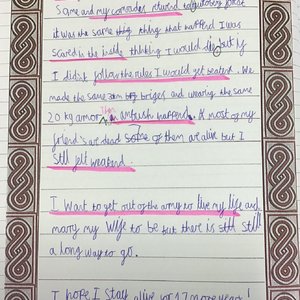 same and my comrades returned to guard post
it was the same thing thing that happend I was
scared in the inside thinking I would die but if
I didnt follow the rules I would get beaten. We
made the same briges and wearing the same
20 kg armor. Then an ambush happend. A most of my
friend's ar dead some of them ar alive but I
still felt weakend.
I want to get out of the army to live my life and
mary my wife to be but there is still still
a long way to go.
I hope I stay alive for 17 more year!